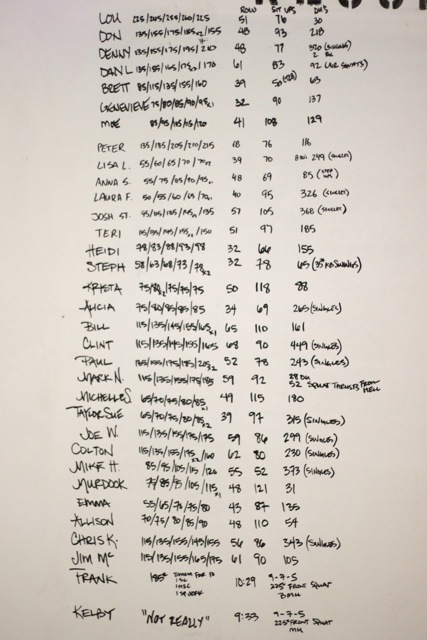 ROW SIT UPS DU'S
LOU 225/205/225/210/225 51 76 30
DON 135/155/175/185x2/155 48 93 218
DENNY 135/155/175/195/210 48 77 320 (SINGLES)
DAN L 135/155/165/175x2/170 61 83 92 (AIR SQUATS)
BRETT 85/115/135/155/160 39 50 63
GENEVIEVE 75/80/85/90/95x1 32 90 137
MOE 85/95/105/115/120 41 108 129
PETER 135/185/205/210/215 48 76 116
LISA L. 55/60/65/70/70x2 39 70 249 (SINGLES)
ANNA S. 55/75/85/90/95 48 69 85 (STEP UPS)
LAURA F. 50/55/60/65/70 40 95 326 (SINGLES)
JOSH ST. 95/115/135/145/135 57 105 368 (SINGLES)
TERI 115/135/145/155/150 51 97 185
HEIDI 78/83/88/93/98 32 66 155
STEPH 58/63/68/73/78x2 32 78 65 (35# KB SWINGS)
KRISTA 75/80x2/75/75/75 50 118 88
ALICIA 75/80/85/85/85 34 69 265 (SINGLES)
BILL 115/135/145/155/165x1 65 110 161
CLINT 115/135/145/155/165 68 90 449 (SINGLES)
PAUL 135/155/175/195/205x2 52 78 243 (SINGLES)
MARK N. 115/135/155/175/185 59 92 28 DU
52 SQUAT THRUSTS FROM HELL
MICHELLE S 65/70/75/80/85x1 49 115 180
TAYLOR SUE 65/70/75/80/85x2 39 97 315 (SINGLES)
JOE W. 115/135/155/175/175 59 86 299 (SINGLES)
COLTON 115/135/155/175x2/160 62 80 230 (SINGLES)
MIKE H. 85/95/105/115/120 55 52 373 (SINGLES)
MURDOCK 75/85/95/105/115x1 48 121 31
EMMA 55/65/70/75/80 43 87 135
ALLISON 70/75/80/85/90 48 110 54
CHRIS K. 115/135/155/145/155 56 86 343 (SINGLES)
JIM MC 115/135/155/165/175 61 90 105
FRANK 185# 10:29 9-7-5
225# FRONT SQUAT
BMU
KELBY "NOT REALLY" 9:33 9-7-5
225# FRONT SQUAT
MU